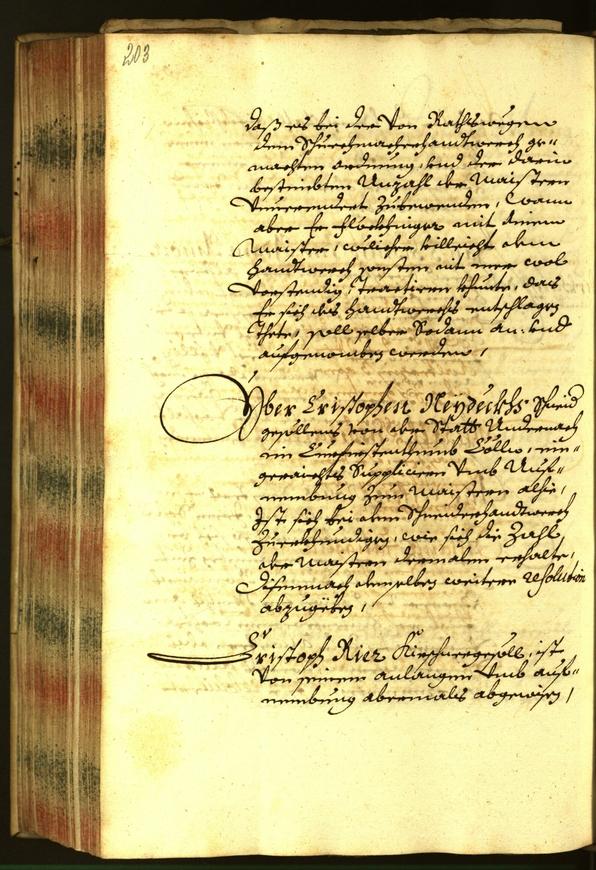 203
daß es bei der von Rathswegen
dem Schuechmacherhandtwerch ge-„
machten Ordnung, und der darin
bestimbten Anzahl der Maistern
Unverendert zubewenden, wann
aber Er Hochhinger mit einem
Maister, welicher villeicht dem
Handtwerch sonsten nit mer wol
vorstendig, tractieren khunte, das
Er sich des Handtwerchs entschlagen
thete, soll selber Sodann an: und
aufgenomben werden,
Yber Cristophen Neydeckhs Schneid
gesöllens von der Statt Andernach
im Churfürstenthumb Cölln, ein-„
geraichtes Supplicieren umb Auf-„
nembung zum Maistern alhie,
Ist sich bei dem Schneiderhandtwerch
zuerkhundigen, wie sich die Zahl
der Maistern dermalen erhalte,
disemnach demselben weitere resolution
abzugeben,
Cristoph Rier Kirschnergesöll, ist
von seinem anlangen umb auf-„
nembung abermals abgewisen,